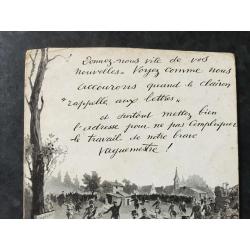 Donnez-nous vite de vos
nouvelles. Voyez comme nous
accourons quand le clairon
"rappelle aux lettres"
et surtout mettez bien
l'adresse pour ne pas compliquer
le travail de notre brave
vaguemestre !